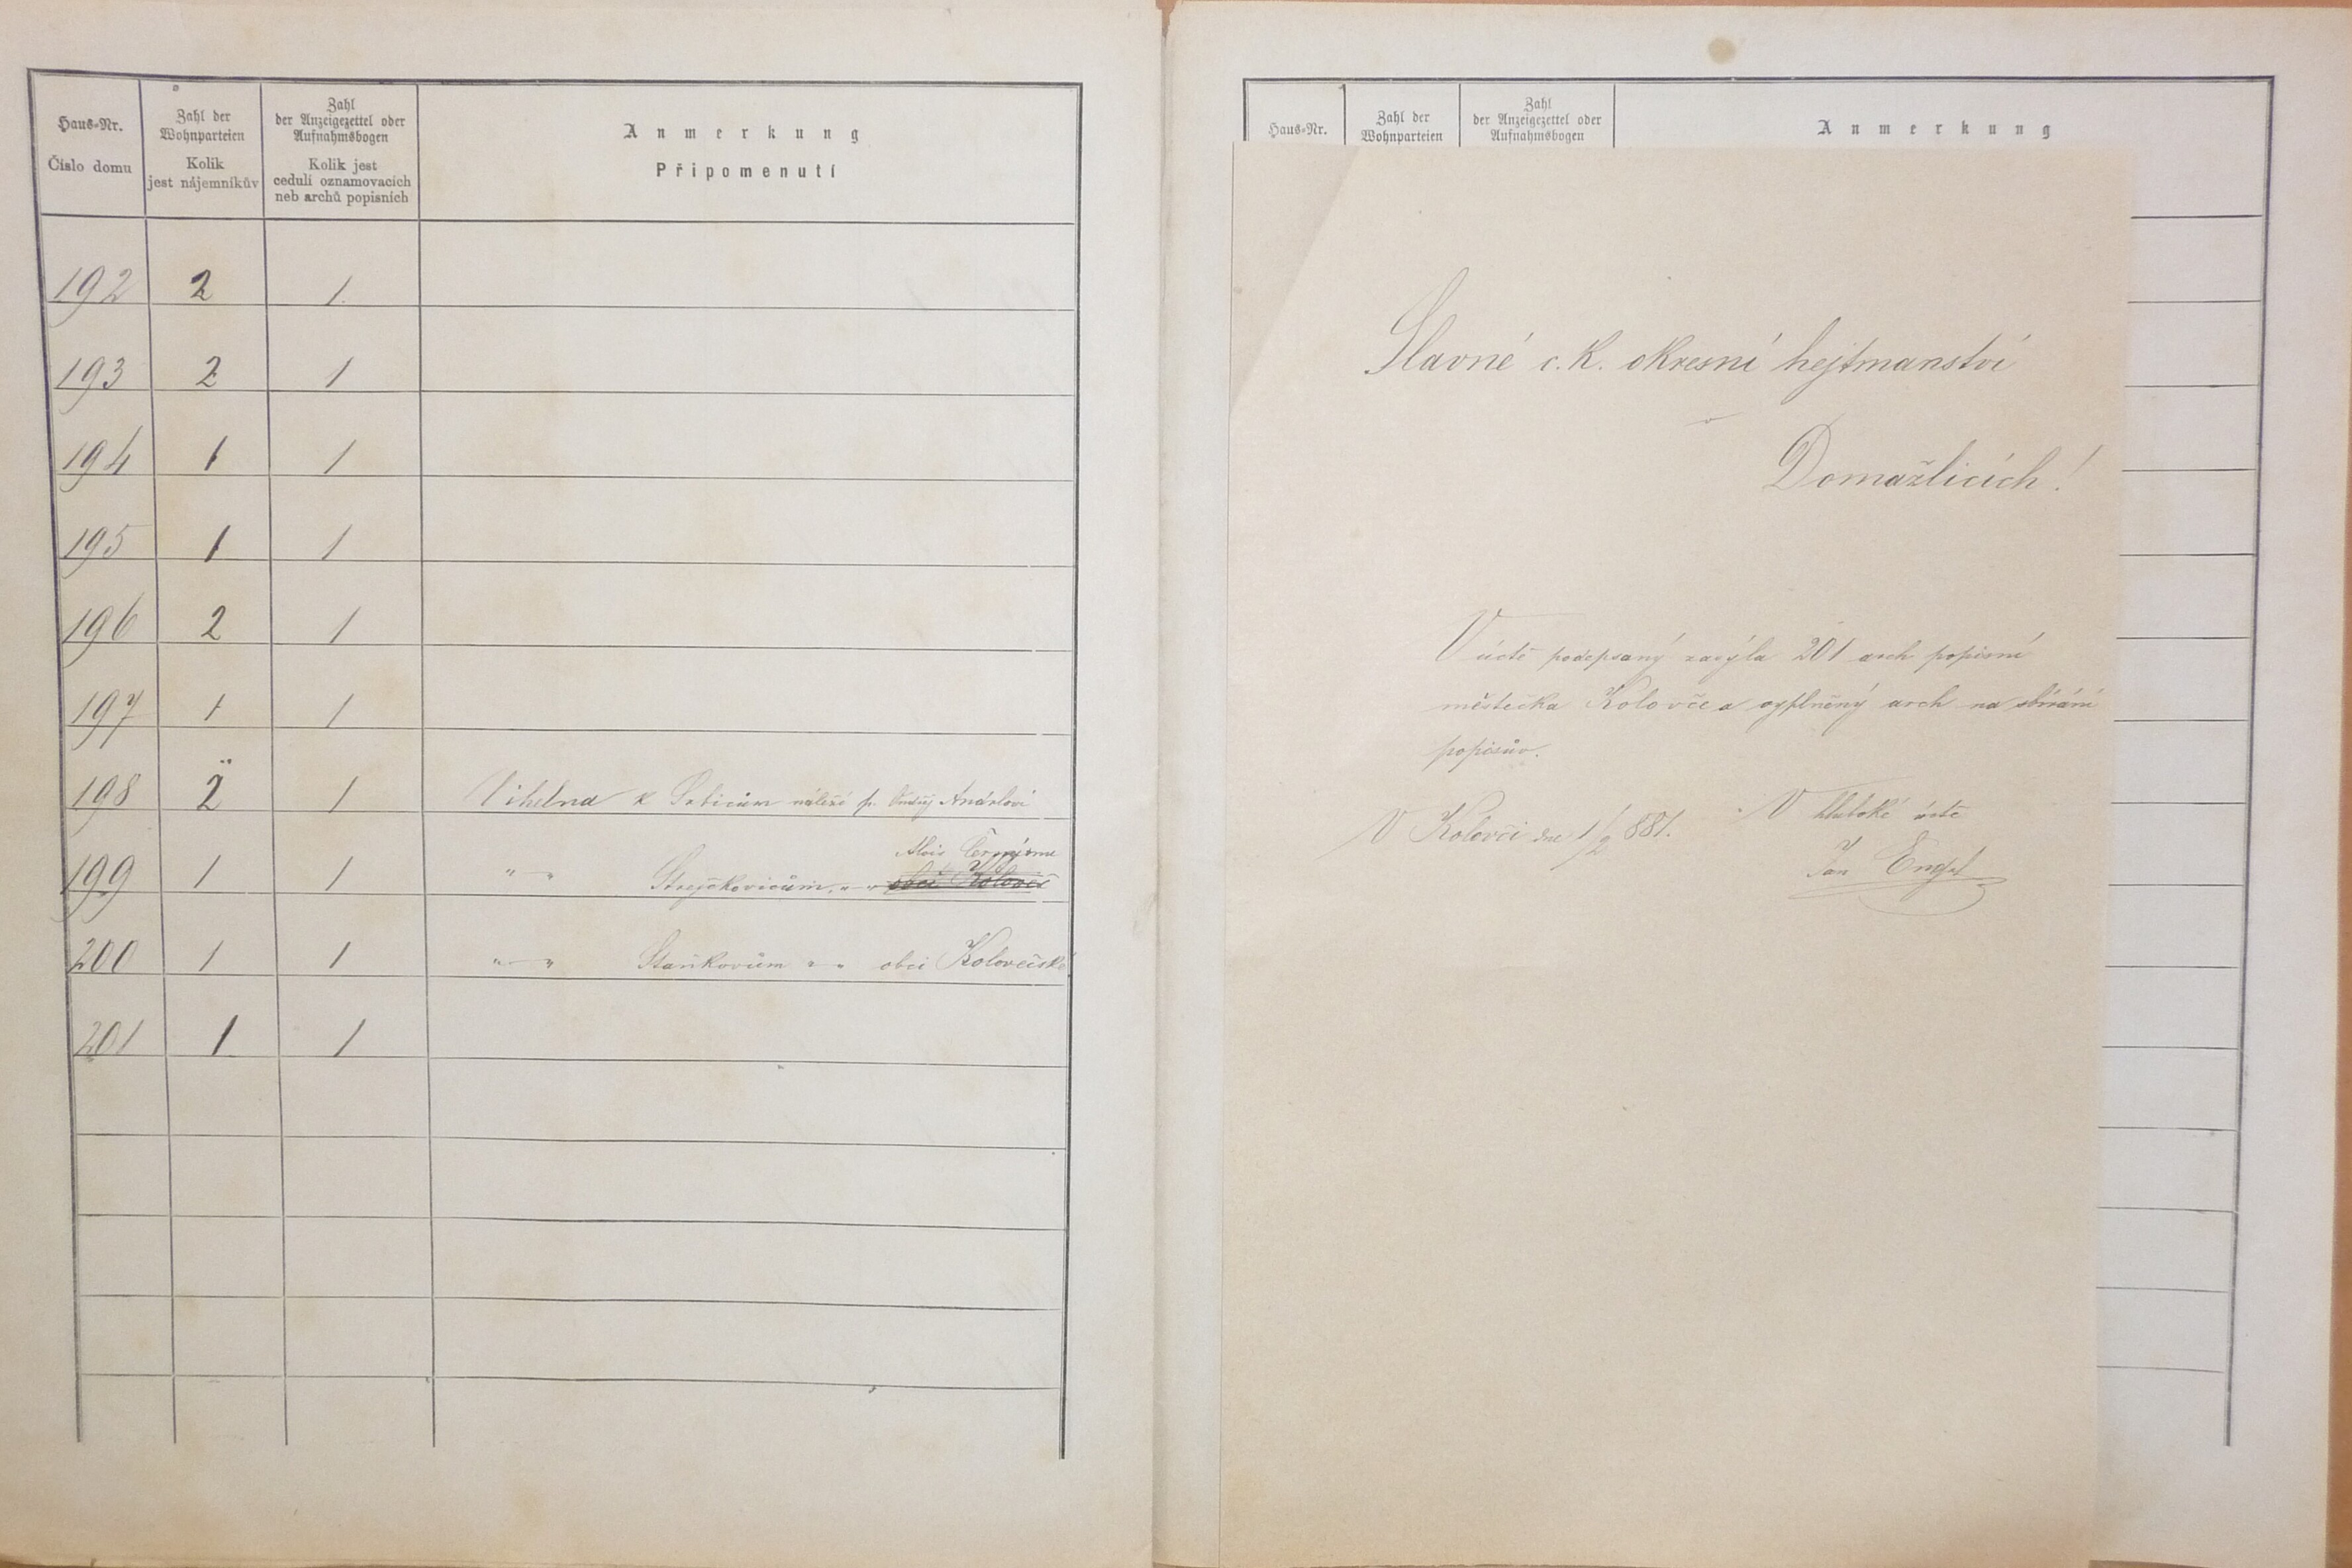 Haus-Nr.
Číslo domu
Zahl der
Wohnparteien
Kolik
jest nájemníkův
Zahl
der Anzeigezettel oder
Aufnahmsbogen
Kolik jest
cedulí oznamovacích
neb archů popisních
Anmerkung
Připomenutí
192 2 1
193 2 1
194 1 1
195 1 1
196 2 1
197 1 1
198 2 1 Cihelna k Srbicům náleží p. Ondřej
Alois
199 1 1 " — " Strejčkovicům " — " obci Kolovči
200 1 1 " — " Staňkovům " " obci Kolovečské
201 1 1
Haus-Nr.
Zahl der
Wohnparteien
Zahl
der Anzeigezettel oder
Aufnahmsbogen
Anmerkung
Slavné c. k. okresní hejtmanství
v
Domažlicích!
V úctě podepsaný zasýla 201 arch popisní
městečka Kolovče a vyplněný arch na sbírání
popisův.
V Kolovči dne 1/2 881.
V hluboké úctě
Jan Engel